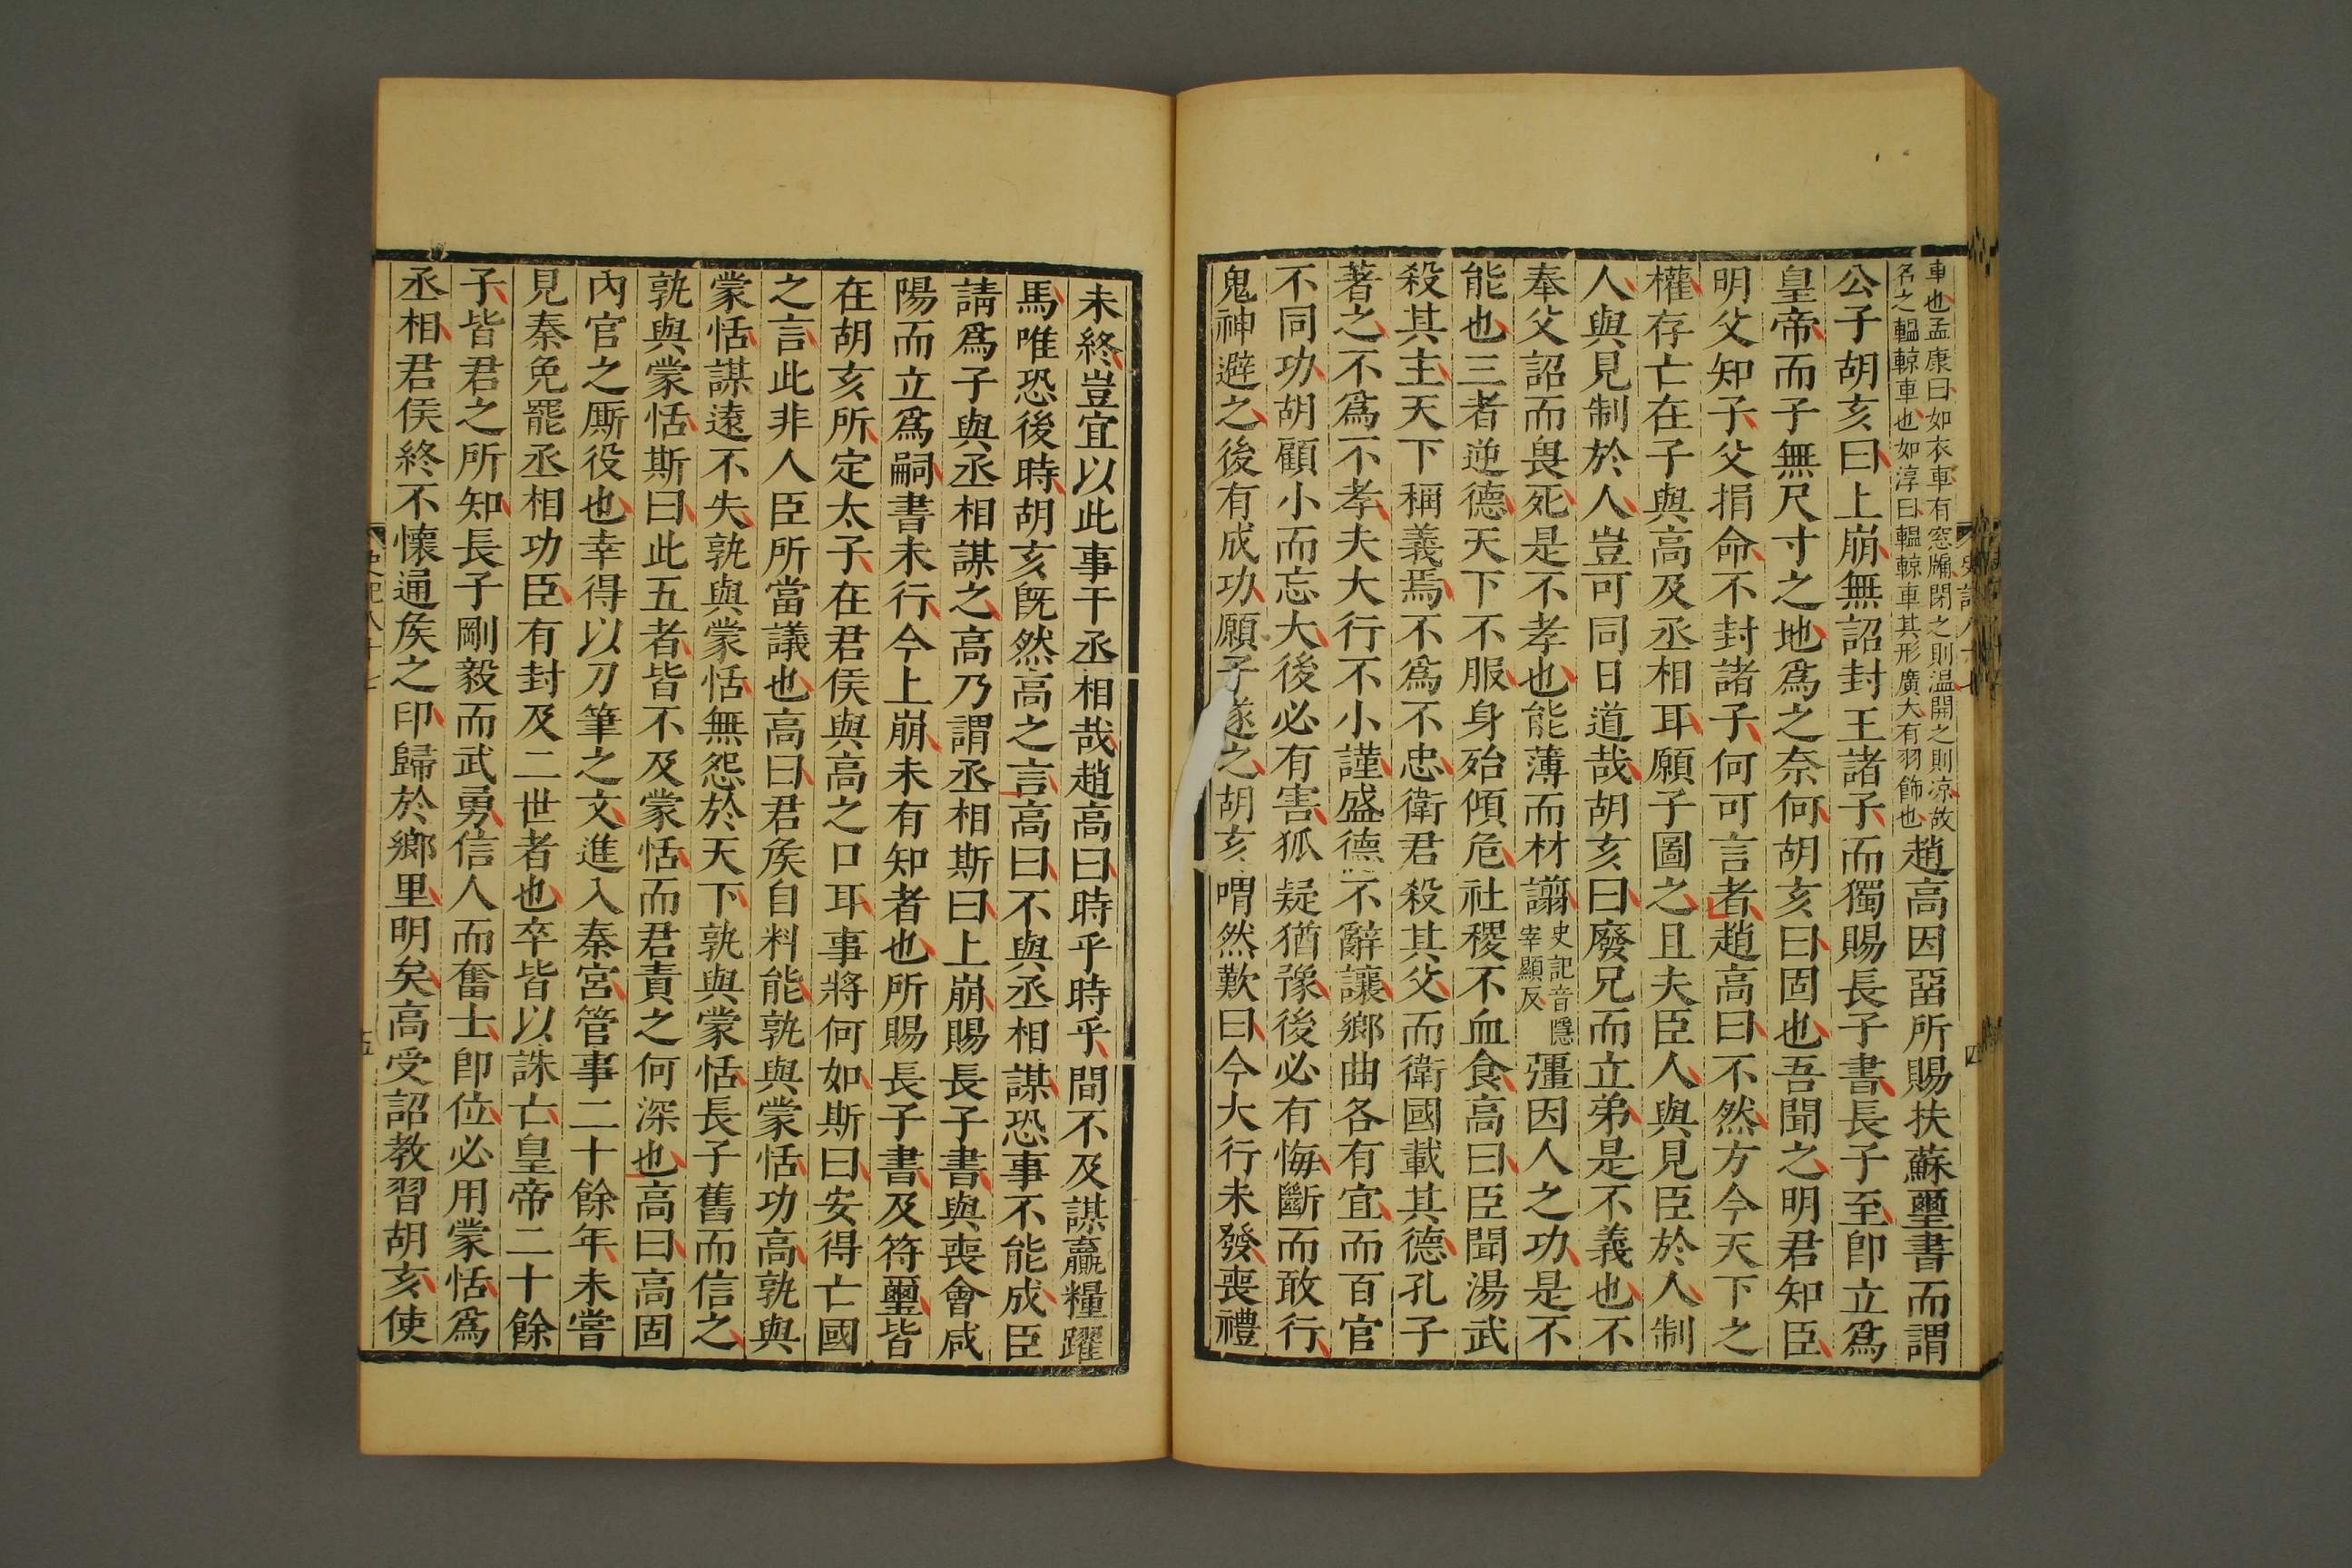 車也孟康曰如衣車有窓牖閉之則温開之則凉故
名之轀輬車也如淳曰轀輬車其形廣大有羽飾也
趙高因畱所賜扶蘇璽書而謂
公子胡亥曰上崩無詔封王諸子而獨賜長子書長子至卽立爲
皇帝而子無尺寸之地爲之奈何胡亥曰固也吾聞之明君知臣
明父知子父捐命不封諸子何可言者趙高曰不然方今天下之
權存亡在子與高及丞相耳願子圖之且夫臣人與見臣於人制
人與見制於人豈可同日道哉胡亥曰廢兄而立弟是不義也不
奉父詔而畏死是不孝也能薄而材譾
史記音隱
宰顯反
彊因人之功是不
能也三者逆德天下不服身殆傾危社稷不血食高曰臣聞湯武
殺其主天下稱義焉不爲不忠衛君殺其父而衛國載其德孔子
著之不爲不孝夫大行不小謹盛德不辭讓鄉曲各有宜而百官
不同功胡顧小而忘大後必有害狐疑猶豫後必有悔斷而敢行
鬼神避之後有成功願子遂之胡亥喟然歎曰今大行未發喪禮
史記八十七
四
未終豈宜以此事干丞相哉趙高曰時乎時乎間不及謀贏糧躍
馬唯恐後時胡亥旣然高之言高曰不與丞相謀恐事不能成臣
請爲子與丞相謀之高乃謂丞相斯曰上崩賜長子書與喪會咸
陽而立爲嗣書未行今上崩未有知者也所賜長子書及符璽皆
在胡亥所定太子在君侯與高之口耳事將何如斯曰安得亡國
之言此非人臣所當議也高曰君矦自料能孰與蒙恬功高孰與
蒙恬謀遠不失孰與蒙恬無怨於天下孰與蒙恬長子舊而信之
孰與蒙恬斯曰此五者皆不及蒙恬而君責之何深也高曰高固
內官之厮役也幸得以刀筆之文進入秦宮管事二十餘年未嘗
見秦免罷丞相功臣有封及二世者也卒皆以誅亡皇帝二十餘
子皆君之所知長子剛毅而武勇信人而奮士卽位必用蒙恬爲
丞相君侯終不懷通矦之印歸於鄉里明矣高受詔教習胡亥使
史記八十七